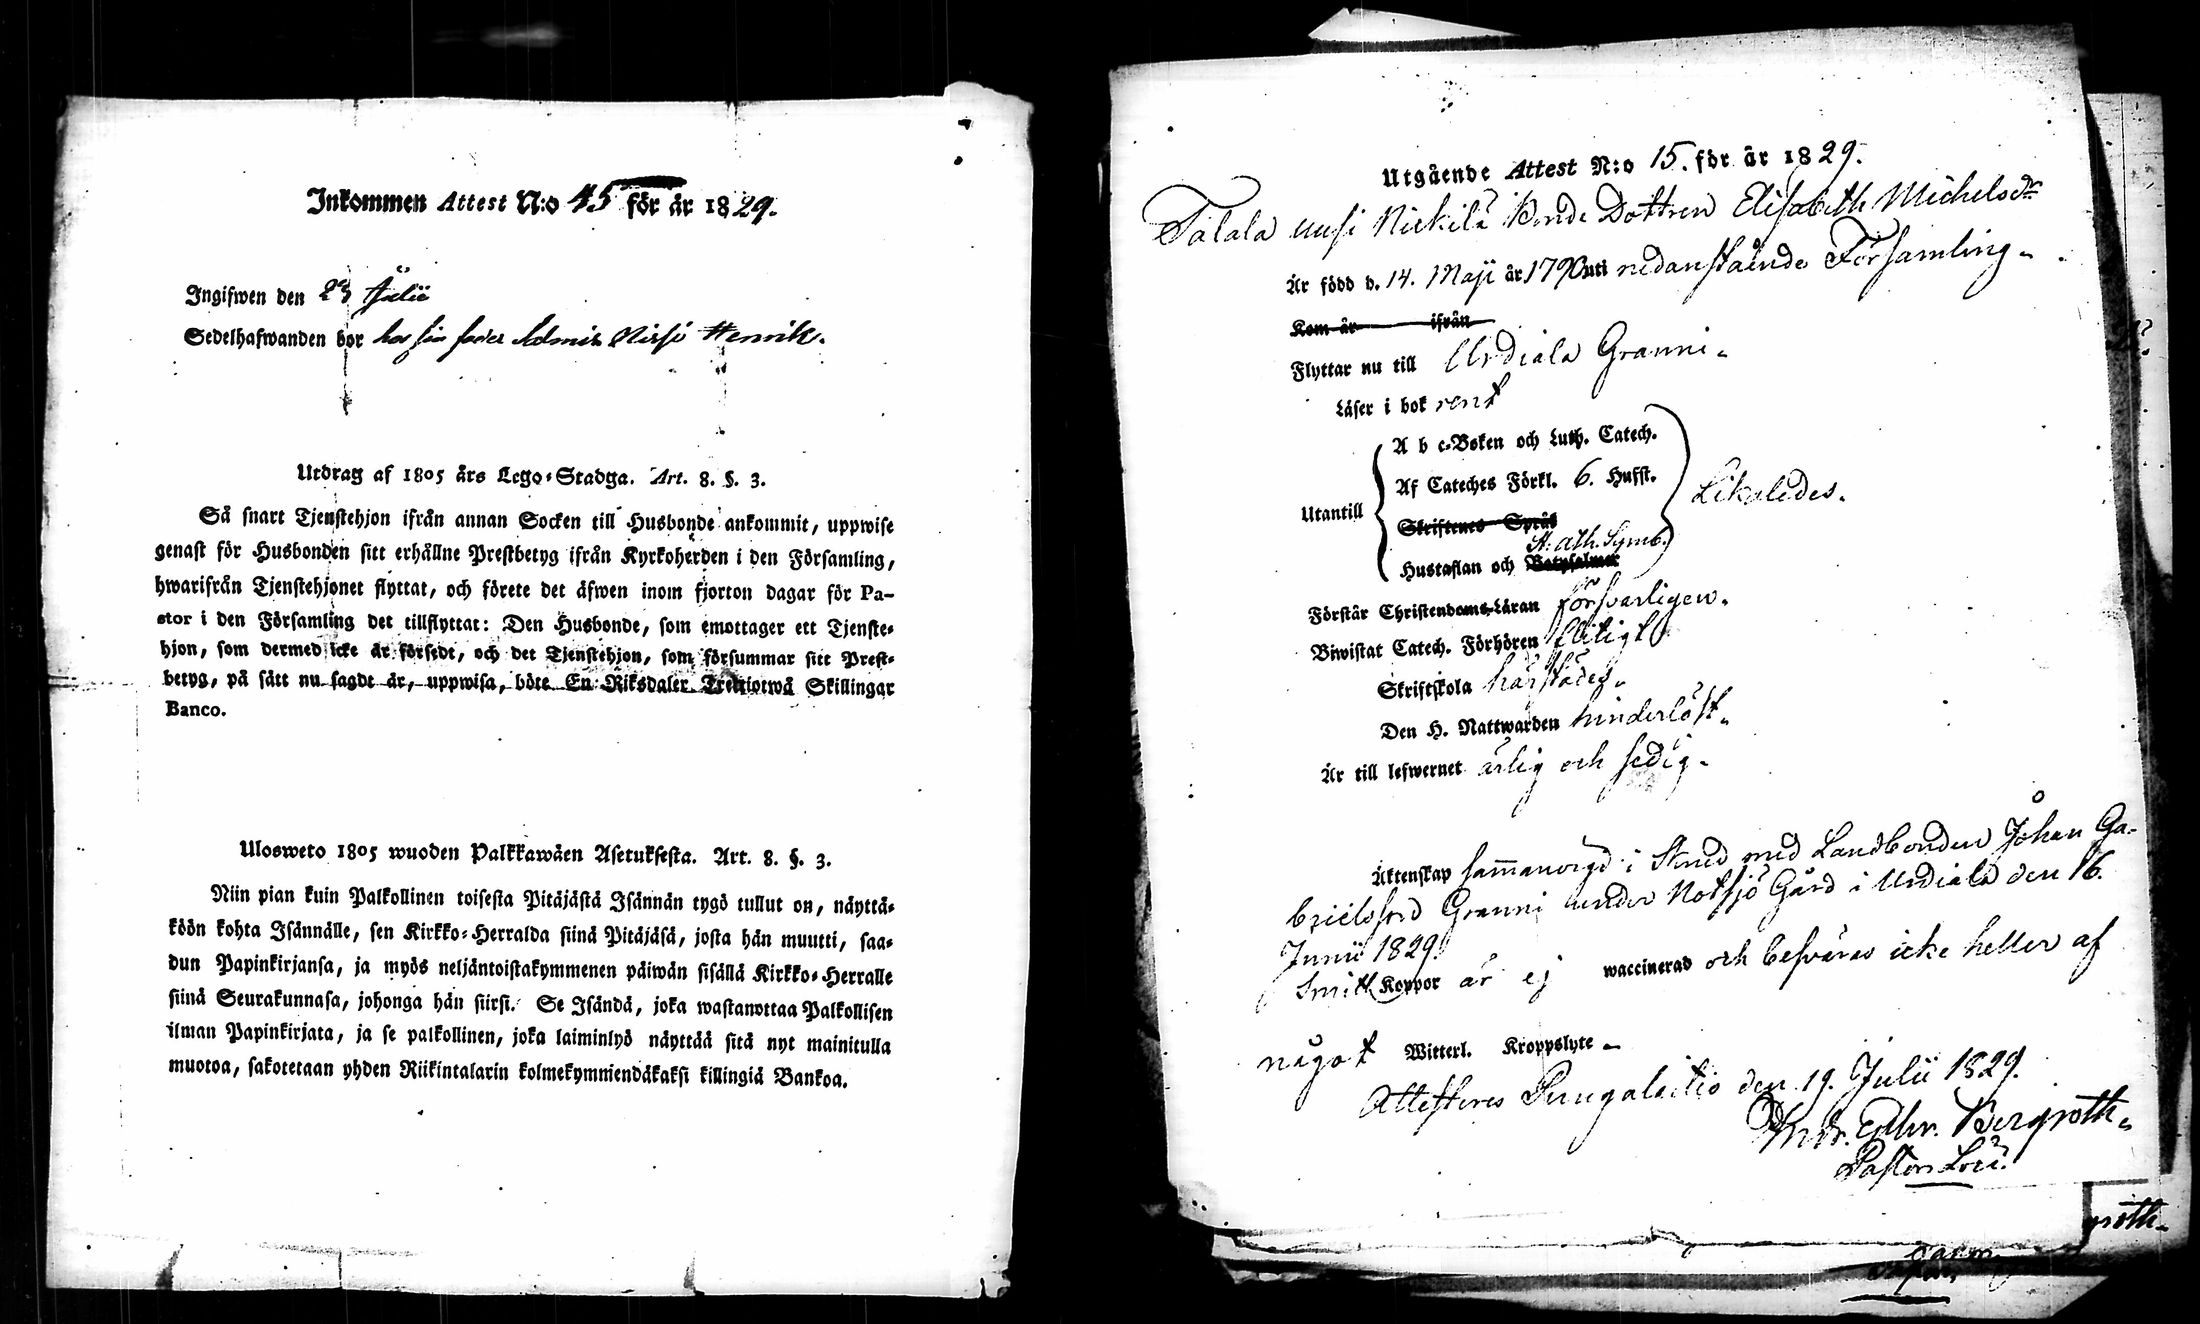 Inkommen Attest N:o 45 för år 1829.
Ingifwen den 23 Julii
Sedelhafwanden bor hos sin fader Henrik.
Utdrag af 1805 års Lego-Stadga. Art. 8. §. 3.
Så snart Tjenstehjon ifrån annan Socken till Husbonde ankommit, uppwise
genast för Husbonden sitt erhållne Prestbetyg ifrån Kyrkoherden i den Församling,
hwarifrån Tjenstehjonet flyttat, och förete det äfwen inom fjorton dagar för Pa-
stor i den Församling det tillflyttat: Den Husbonde, som emottager ett Tjenste-
hjon, som dermed icke är försedt, och det Tjenstehjon, som försummar sitt Prest-
betyg, på sätt nu sagdt är, uppwisa, böte En Riksdaler Trettiotwå Skillingar
Banco.
Ulosweto 1805 wuoden Palkkawäen Asetuksesta. Art. 8. §. 3.
Niin pian kuin Palkollinen toisesta Pitäjästä Isännän tygö tullut on, näyttä-
köön kohta Isännälle, sen Kirkko-Herralda siinä Pitäjäsä, josta hän muutti, saa-
dun Papinkirjansa, ja myös neljäntoistakymmenen päiwän sisällä Kirkko-Herralle
siinä Seurakunnasa, johonga hän siirsi. Se Isändä, joka wastanottaa Palkollisen
ilman Papinkirjata, ja se palkollinen, joka laiminlyö näyttää sitä nyt mainitulla
muotoa, sakotetaan yhden Riikintalarin kolmekymmendäkaksi killingiä Bankoa.
Utgående Attest N:o 15. för år 1829.
Talala uusi Nickilä Bonde Dottren Elisabeth Michelsdr
Är född d. 14. Maji år 1790 uti nedanstående Församling.
Kom år ifrån
Flyttar nu till Urdiala Granni.
Läser i bok rent
A b c-Boken och Luth. Catech.
Af Cateches Förkl. 6. Hufst.
Utantill Likaledes.
Skriftenes Språk
St: Ath. Symb.
Hustaflan och Botpsalmer
Förstår Christendoms-Läran försvarligen.
Biwistat Catech. Förhören flitigt
Skriftskola härstädes.
Den H. Nattwarden hinderlöst.
Är till lefwernet ärlig och sedig.
Äktenskap sammanvigd i Stånd med Landbonden Johan Ga-
brielsson Granni under Notsjö Gård i Urdiala den 16.
Junii 1829.
Smitt Koppor är ej waccinerad och besväras icke heller af
något Witterl. Kroppslyte.
Attesteres Pungalaitio den 19. Julii 1829.
Andr. Edhv. Bergroth.
Pastor Loci.